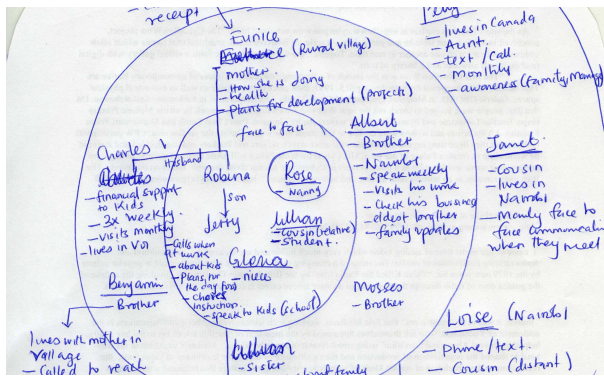 receipt
Eunice
(Rural village)
mother
- How she is doing
- health
- Plans for development (projects)
face to face
Perry
- lives in Canada
- Aunt.
- text / call.
- Monthly
- awareness (family, 
Charles
- financial support
to Kids
- 3x weekly.
- visits monthly
- lives in Voi
Husband
Robina
son
Jerry
- Calls when
at work
- about kids
- Plans for
the day food
- chores
instruction
- speak to Kids (school)
Rose
- Nanny
Lillian
- cousin (relative)
- student.
Gloria
- niece
Albert
- Brother
- Nairobi
- speak weekly
- visits his work
- Check his business
- eldest brother
- family updates
Janet.
- Cousin
- lives in
Nairobi
- Mainly face to
face communication
when they meet
Benjamin
- Brother
lives with mother in
village
- Called to reach
Mosses
- Brother
- Sister
about family
Loise (Nairobi
- Phone / text.
- Cousin (distant)